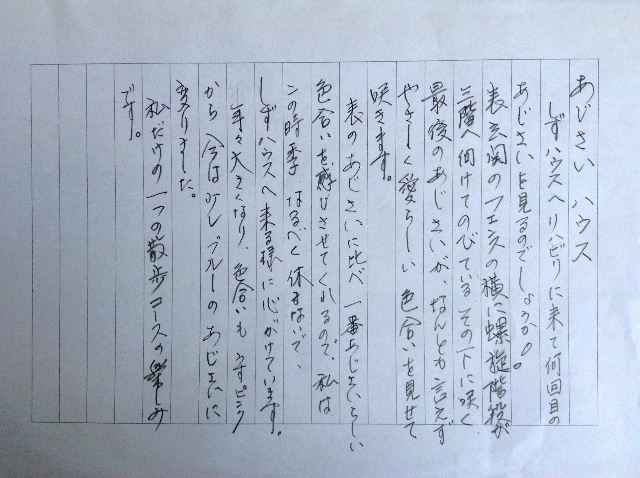 あじさい ハウス
しずハウスへリハビリに来て何回目の
あじさいを見るのでしょうか。
表玄関のフェンスの横に螺旋階段が
三階へ向けてのびている その下に咲く
最後のあじさいが、なんとも言えず
やさしく愛らしい 色合いを見せて
咲きます。
表のあじさいに比べ 一番あじさいらしい
色合いを感じさせてくれるので、私は
この時季 なるべく休まないで、
しずハウスへ来る様に心がけています。
年々大きくなり、色合いも うすピンク
から 今は ブルーのあじさいに
変りました。
私だけの 一つの散歩コースの楽しみ
です。